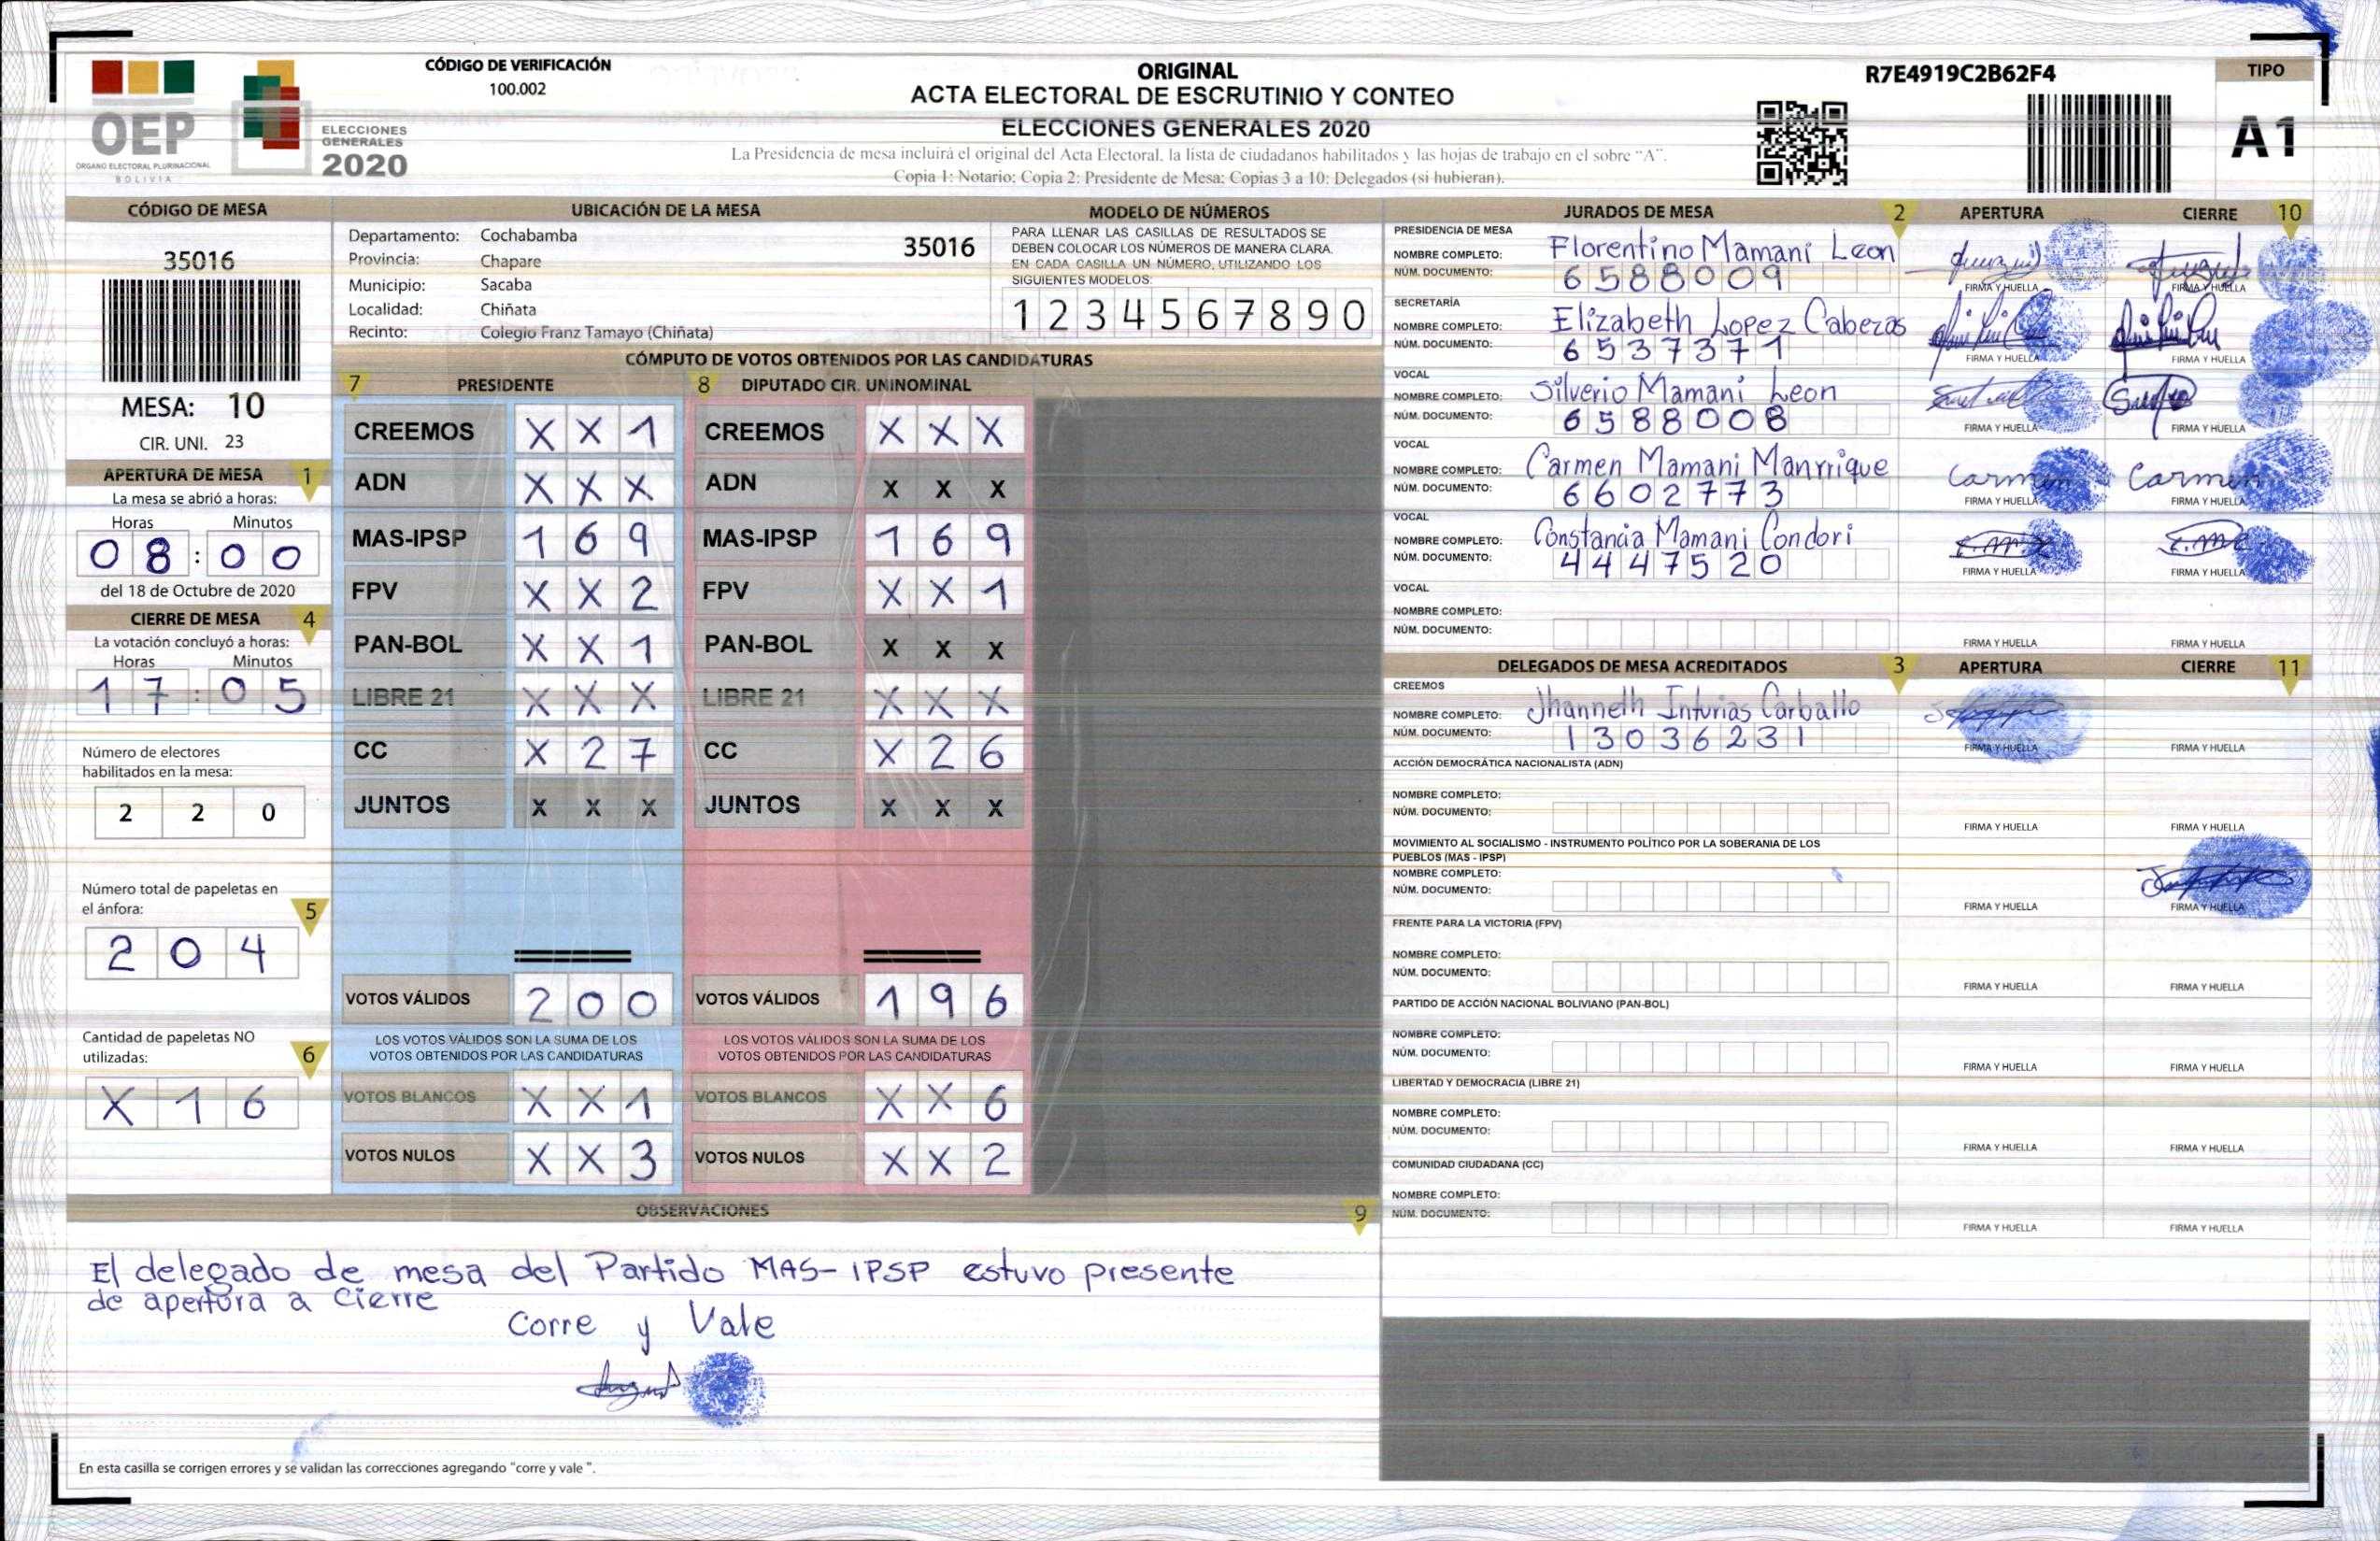 OEP
ÓRGANO ELECTORAL PLURINACIONAL
BOLIVIA
ELECCIONES
GENERALES
2020
CÓDIGO DE VERIFICACIÓN
100.002
ORIGINAL
ACTA ELECTORAL DE ESCRUTINIO Y CONTEO
ELECCIONES GENERALES 2020
La Presidencia de mesa incluirá el original del Acta Electoral, la lista de ciudadanos habilitados y las hojas de trabajo en el sobre "A".
Copia 1: Notario; Copia 2: Presidente de Mesa; Copias 3 a 10: Delegados (si hubieran).
R7E4919C2B62F4
TIPO
A1
CÓDIGO DE MESA
35016
MESA: 10
CIR. UNI. 23
APERTURA DE MESA 1
La mesa se abrió a horas:
Horas Minutos
08:00
del 18 de Octubre de 2020
CIERRE DE MESA 4
La votación concluyó a horas:
Horas Minutos
17:05
Número de electores
habilitados en la mesa:
2 2 0
Número total de papeletas en
el ánfora: 5
2 0 4
Cantidad de papeletas NO
utilizadas: 6
X 1 6
UBICACIÓN DE LA MESA
Departamento: Cochabamba
Provincia: Chapare
Municipio: Sacaba
Localidad: Chiñata
Recinto: Colegio Franz Tamayo (Chiñata)
35016
MODELO DE NÚMEROS
PARA LLENAR LAS CASILLAS DE RESULTADOS SE
DEBEN COLOCAR LOS NÚMEROS DE MANERA CLARA.
EN CADA CASILLA UN NÚMERO, UTILIZANDO LOS
SIGUIENTES MODELOS:
1 2 3 4 5 6 7 8 9 0
CÓMPUTO DE VOTOS OBTENIDOS POR LAS CANDIDATURAS
7 PRESIDENTE 8 DIPUTADO CIR. UNINOMINAL
CREEMOS X X 1 CREEMOS X X X
ADN X X X ADN X X X
MAS-IPSP 1 6 9 MAS-IPSP 1 6 9
FPV X X 2 FPV X X 1
PAN-BOL X X 1 PAN-BOL X X X
LIBRE 21 X X X LIBRE 21 X X X
CC X 2 7 CC X 2 6
JUNTOS X X X JUNTOS X X X
VOTOS VÁLIDOS 2 0 0 VOTOS VÁLIDOS 1 9 6
LOS VOTOS VÁLIDOS SON LA SUMA DE LOS LOS VOTOS VÁLIDOS SON LA SUMA DE LOS
VOTOS OBTENIDOS POR LAS CANDIDATURAS VOTOS OBTENIDOS POR LAS CANDIDATURAS
VOTOS BLANCOS X X 1 VOTOS BLANCOS X X 6
VOTOS NULOS X X 3 VOTOS NULOS X X 2
OBSERVACIONES 9
El delegado de mesa del Partido MAS-IPSP estuvo presente
de apertura a cierre
Corre y Vale
En esta casilla se corrigen errores y se validan las correcciones agregando "corre y vale ".
JURADOS DE MESA 2 APERTURA CIERRE 10
PRESIDENCIA DE MESA
NOMBRE COMPLETO: Florentino Mamani Leon
NÚM. DOCUMENTO: 6588009
FIRMA Y HUELLA FIRMA Y HUELLA
SECRETARÍA
NOMBRE COMPLETO: Elizabeth Lopez Cabezas
NÚM. DOCUMENTO: 6537371
FIRMA Y HUELLA FIRMA Y HUELLA
VOCAL
NOMBRE COMPLETO: Silverio Mamani Leon
NÚM. DOCUMENTO: 6588008
FIRMA Y HUELLA FIRMA Y HUELLA
VOCAL
NOMBRE COMPLETO: Carmen Mamani Manrrique
NÚM. DOCUMENTO: 6602773
Carmen Carmen
FIRMA Y HUELLA FIRMA Y HUELLA
VOCAL
NOMBRE COMPLETO: Constancia Mamani Condori
NÚM. DOCUMENTO: 4447520
FIRMA Y HUELLA FIRMA Y HUELLA
VOCAL
NOMBRE COMPLETO:
NÚM. DOCUMENTO:
FIRMA Y HUELLA FIRMA Y HUELLA
DELEGADOS DE MESA ACREDITADOS 3 APERTURA CIERRE 11
CREEMOS
NOMBRE COMPLETO: Jhanneth Inturias Carballo
NÚM. DOCUMENTO: 13036231
FIRMA Y HUELLA FIRMA Y HUELLA
ACCIÓN DEMOCRÁTICA NACIONALISTA (ADN)
NOMBRE COMPLETO:
NÚM. DOCUMENTO:
FIRMA Y HUELLA FIRMA Y HUELLA
MOVIMIENTO AL SOCIALISMO - INSTRUMENTO POLÍTICO POR LA SOBERANIA DE LOS
PUEBLOS (MAS - IPSP)
NOMBRE COMPLETO:
NÚM. DOCUMENTO:
FIRMA Y HUELLA FIRMA Y HUELLA
FRENTE PARA LA VICTORIA (FPV)
NOMBRE COMPLETO:
NÚM. DOCUMENTO:
FIRMA Y HUELLA FIRMA Y HUELLA
PARTIDO DE ACCIÓN NACIONAL BOLIVIANO (PAN-BOL)
NOMBRE COMPLETO:
NÚM. DOCUMENTO:
FIRMA Y HUELLA FIRMA Y HUELLA
LIBERTAD Y DEMOCRACIA (LIBRE 21)
NOMBRE COMPLETO:
NÚM. DOCUMENTO:
FIRMA Y HUELLA FIRMA Y HUELLA
COMUNIDAD CIUDADANA (CC)
NOMBRE COMPLETO:
NÚM. DOCUMENTO:
FIRMA Y HUELLA FIRMA Y HUELLA